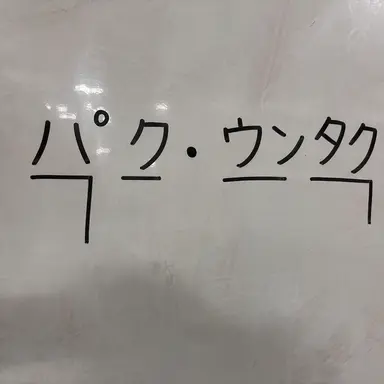 パク・ウンタク